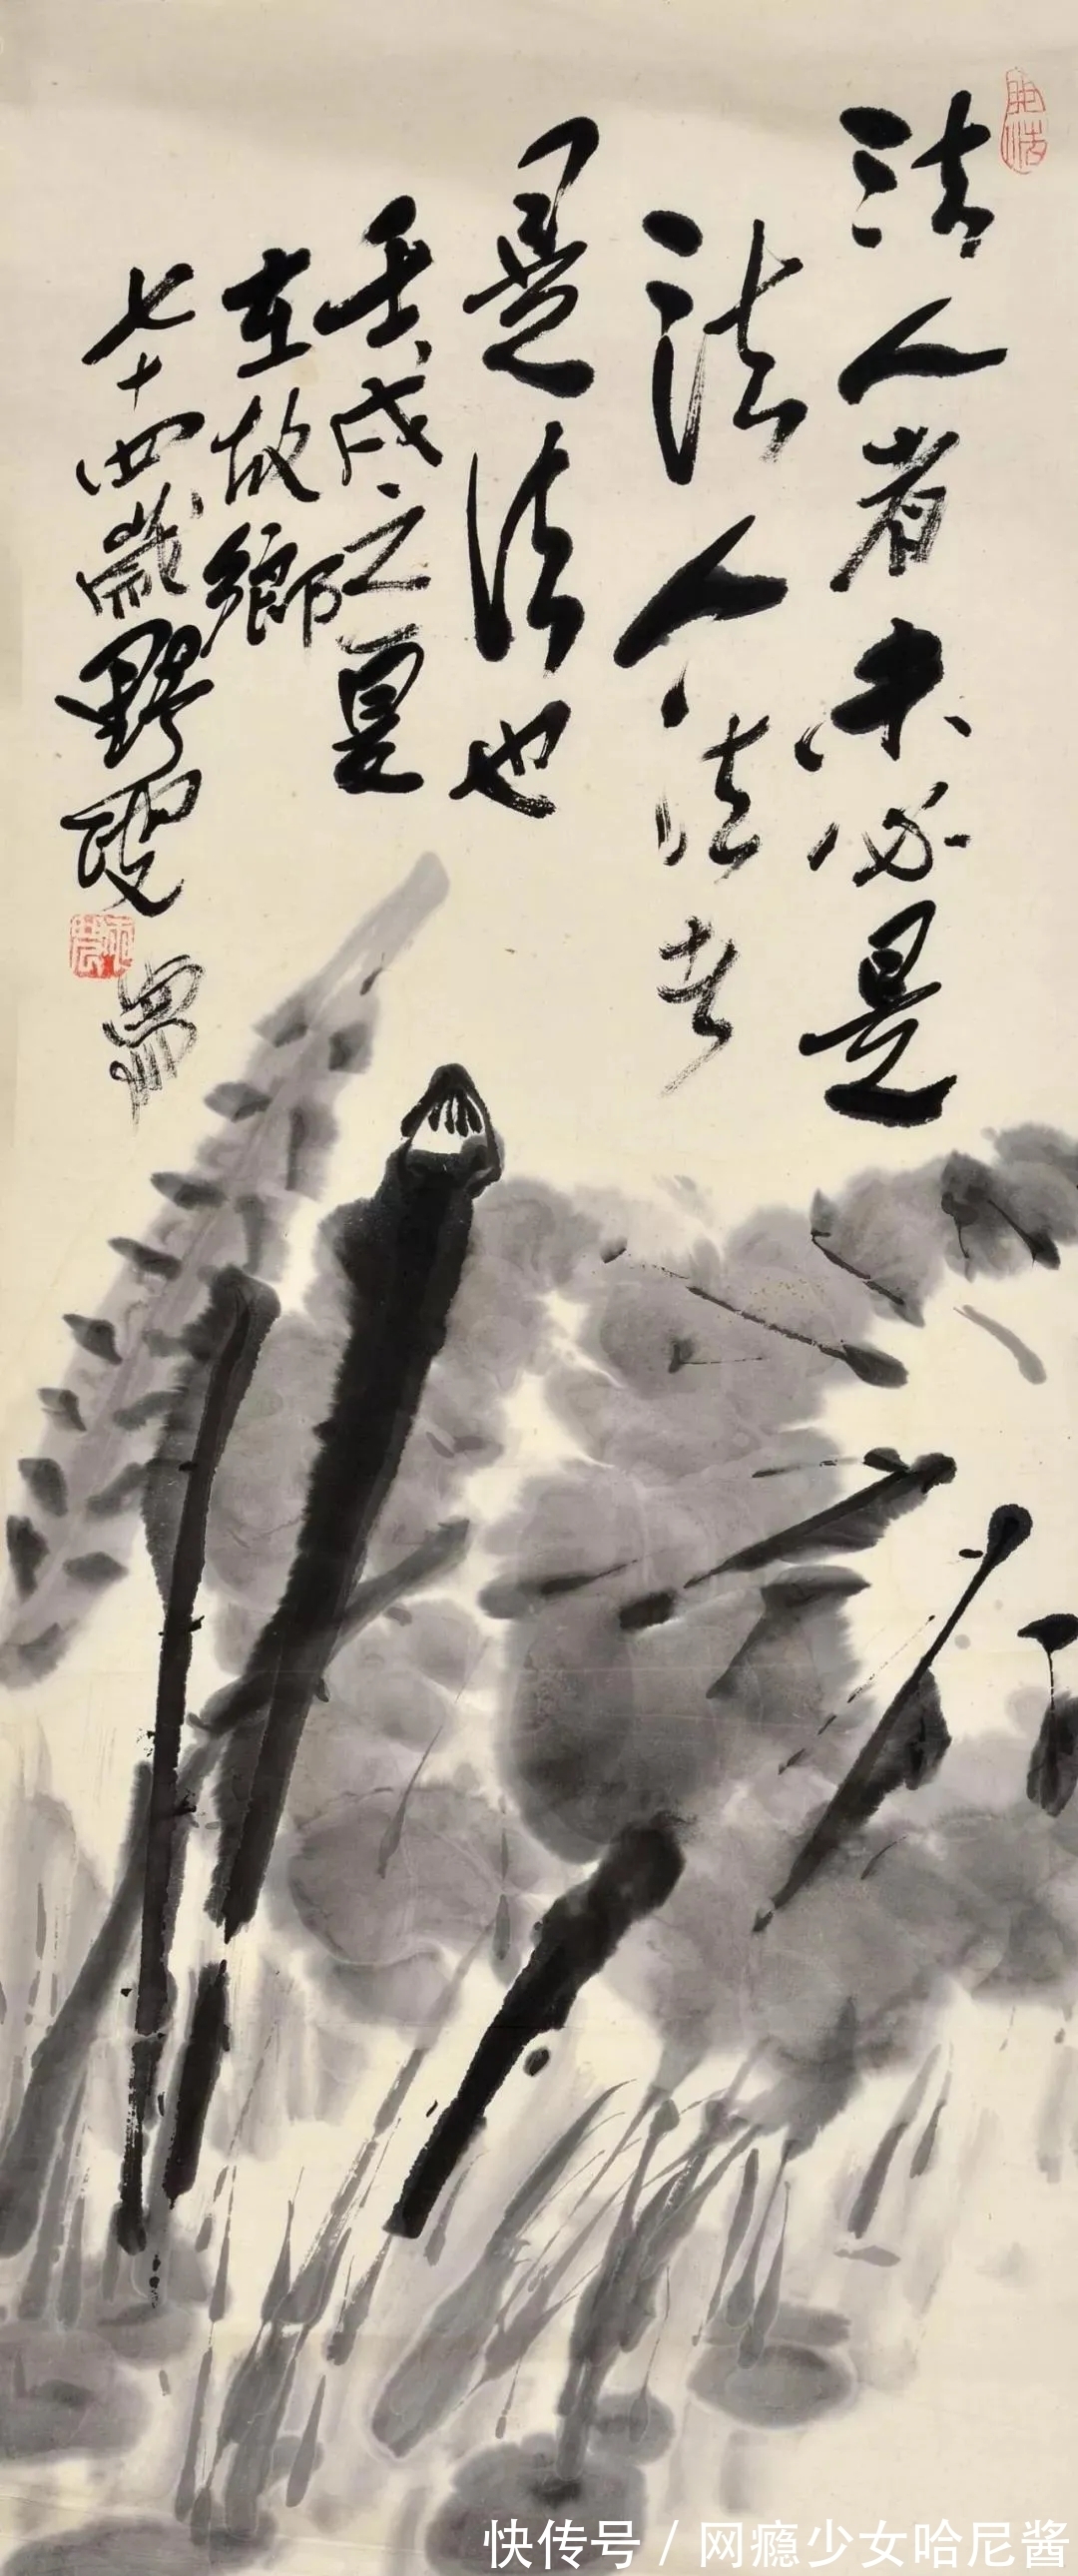 法人者未必是
法人法者
是法也
壬戌之夏
在故鄉
七十四歲野
快传号 / 网瘾少女哈尼酱